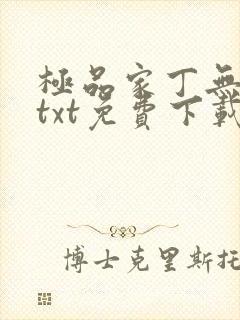 極品家丁無
txt免費下載
博士克里斯托